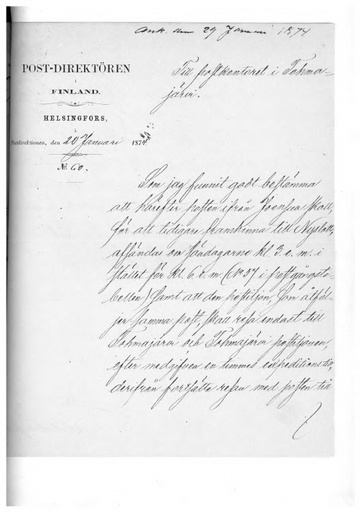 ank. den 29 Januari 1874
POST-DIREKTÖREN
i
FINLAND.
HELSINGFORS,
Postdirektionen, den 20 Januari 1874
№ 60.
Till postkontoret i Tohma-
järvi.
Som jag funnit godt bestämma
att härefter posten ifrån Joensuu skall,
för att tidigare framkomma till Nyslott,
afsändas om Söndagarne kl 3 e. m. i
stället för kl. 6 e. m. (№ 37 i postgångsta-
bellen) samt att den postiljon, som åtföl-
jer samma post, skall resa endast till
Tohmajärvi och Tohmajärvi postiljonen,
efter medgifven en timmes expeditionstid,
derifrån fortsätta resan med posten till